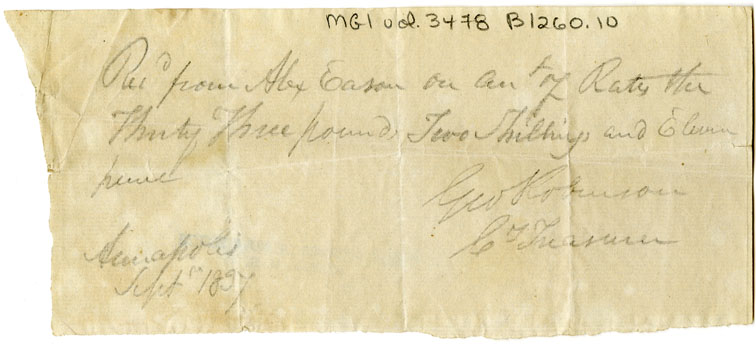 MG1 vol. 3478 B1260.10
Rec'd from Alex Eason on act of Rates the
Thirty Three pounds Two Shillings and Eleven
pence
Geo Robinson
Co Treasurer
Annapolis
Sept 1837